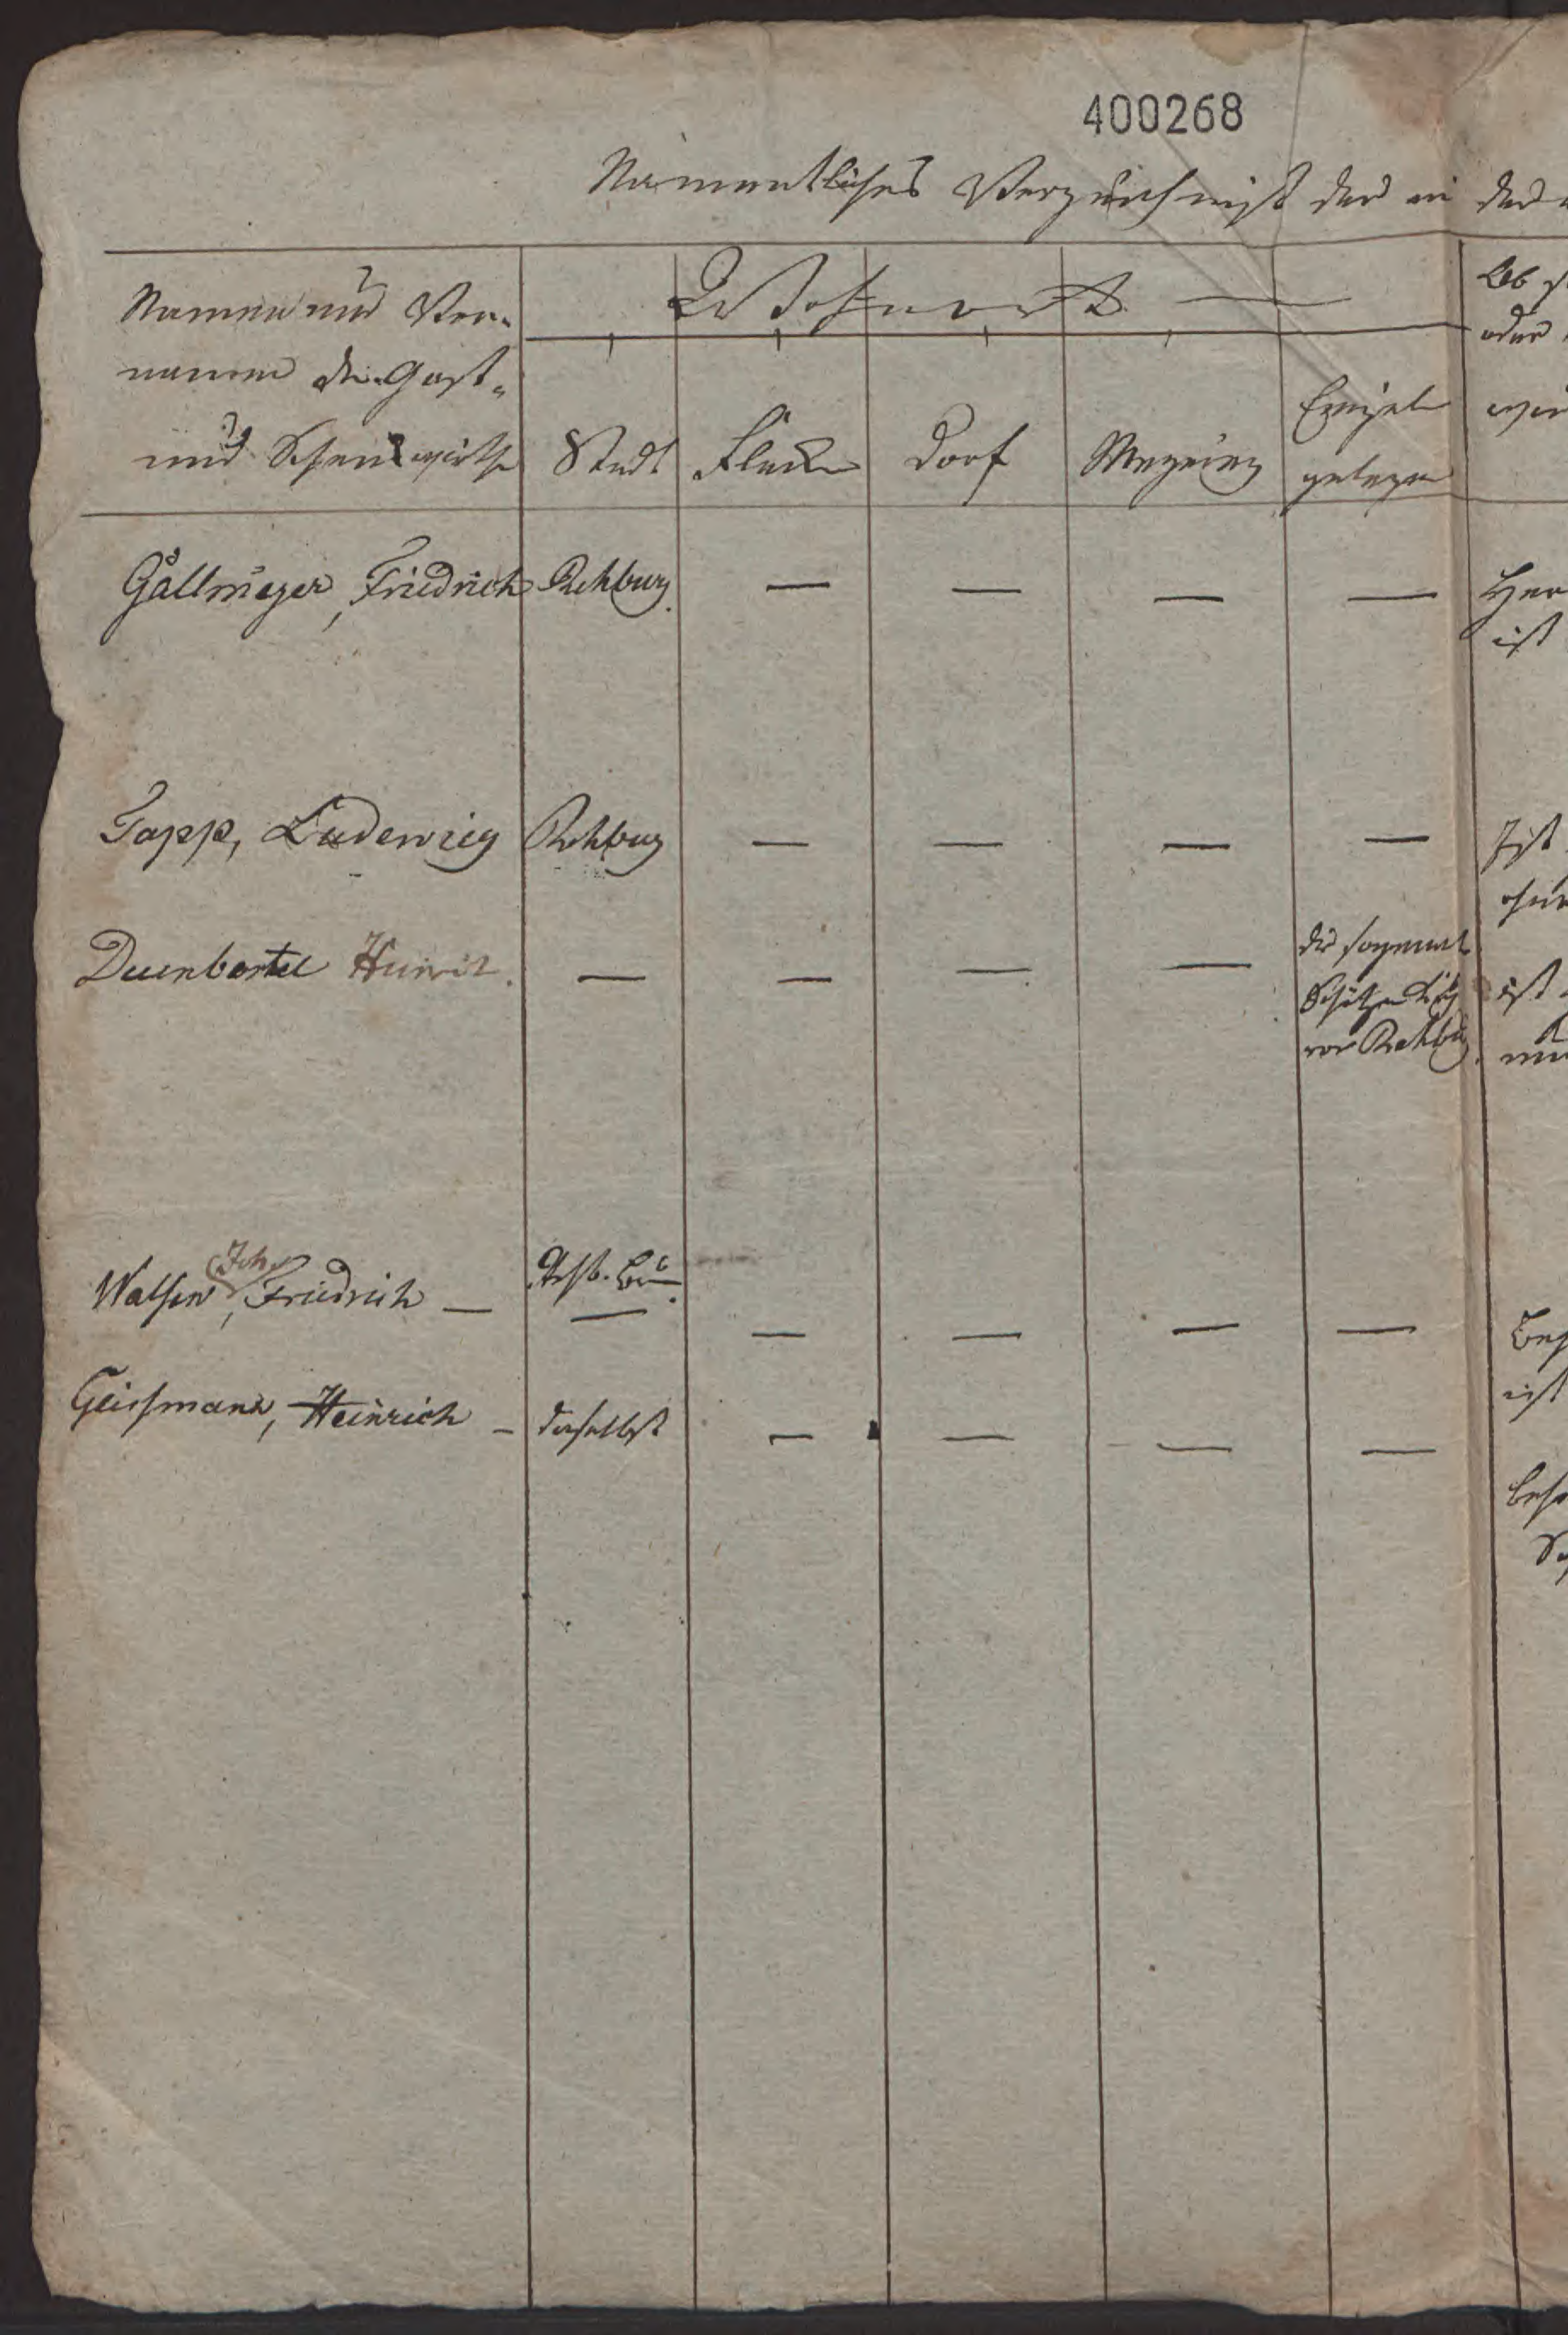 400268
Namentliches Verzeichniß der in der
Namen und Vor-
namen der Gast-
und Schenkwirthe
Wohnort
Stadt Flecken Dorf Einzeln
gelegen
Ob
oder
Gällmeyer, Friedrich Rehburg. — — — — Her
ist
Tapp, Ludewig Rehburg — — — — Ist
Duenbostel Heinrich. — — — — die sogenannte
vor Rehburg
ist
Walsen, Joh. Friedrich — — — — — —
ist
Geissmann, Heinrich — daselbst — — — —